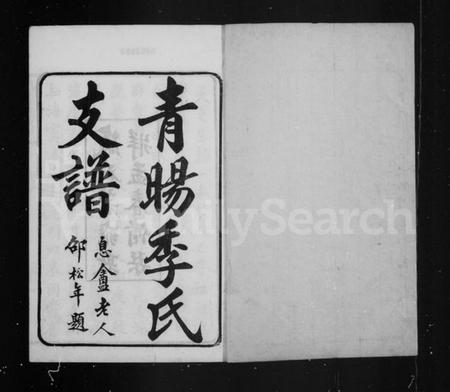 青暘季氏
支譜
息盦老人
邵松年題
FamilySearch